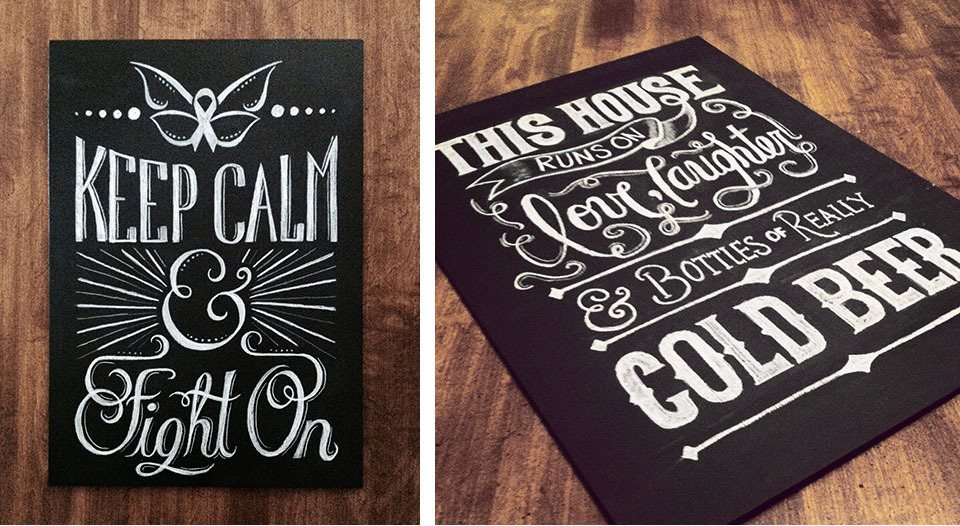 KEEP CALM
&
Fight On
THIS HOUSE
RUNS ON
love, laughter
& BOTTLES OF REALLY
COLD BEER